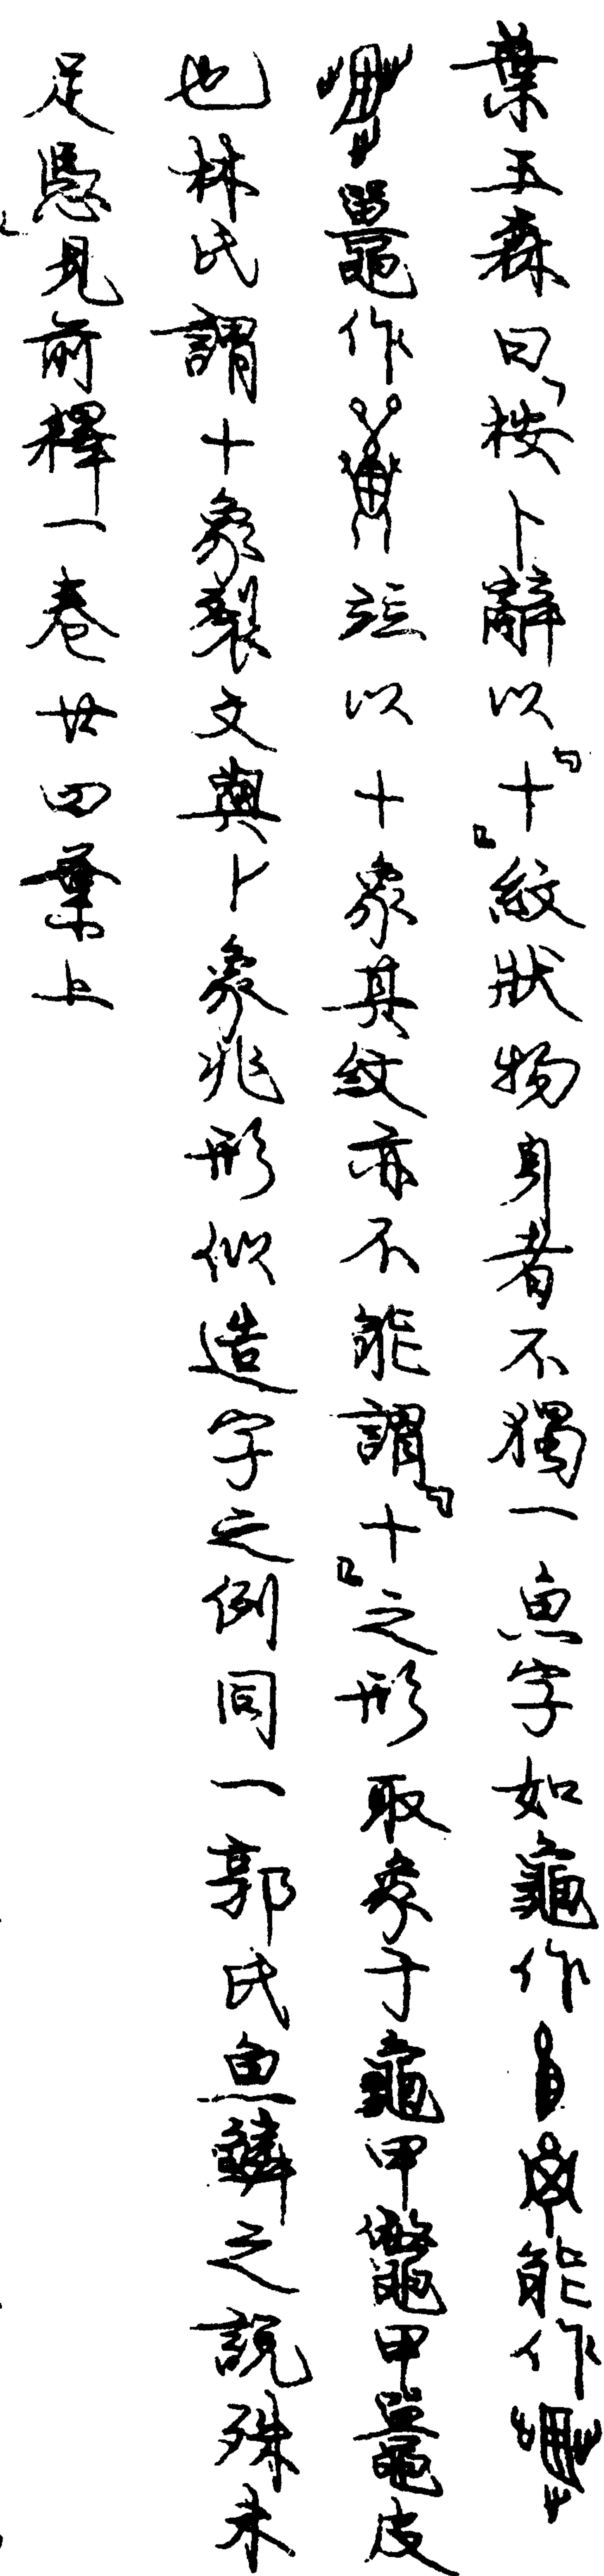 葉玉森曰「按卜辭以「十」紋狀物身者不獨一魚字如龜作能作
鼉作竝以十象其紋亦不能謂「十」之形取象于龜甲鼈甲鼉皮
也林氏謂十象裂文與卜象兆形似造字之例同一郭氏魚鱗之說殊未
足憑」見前釋一卷廿四葉上